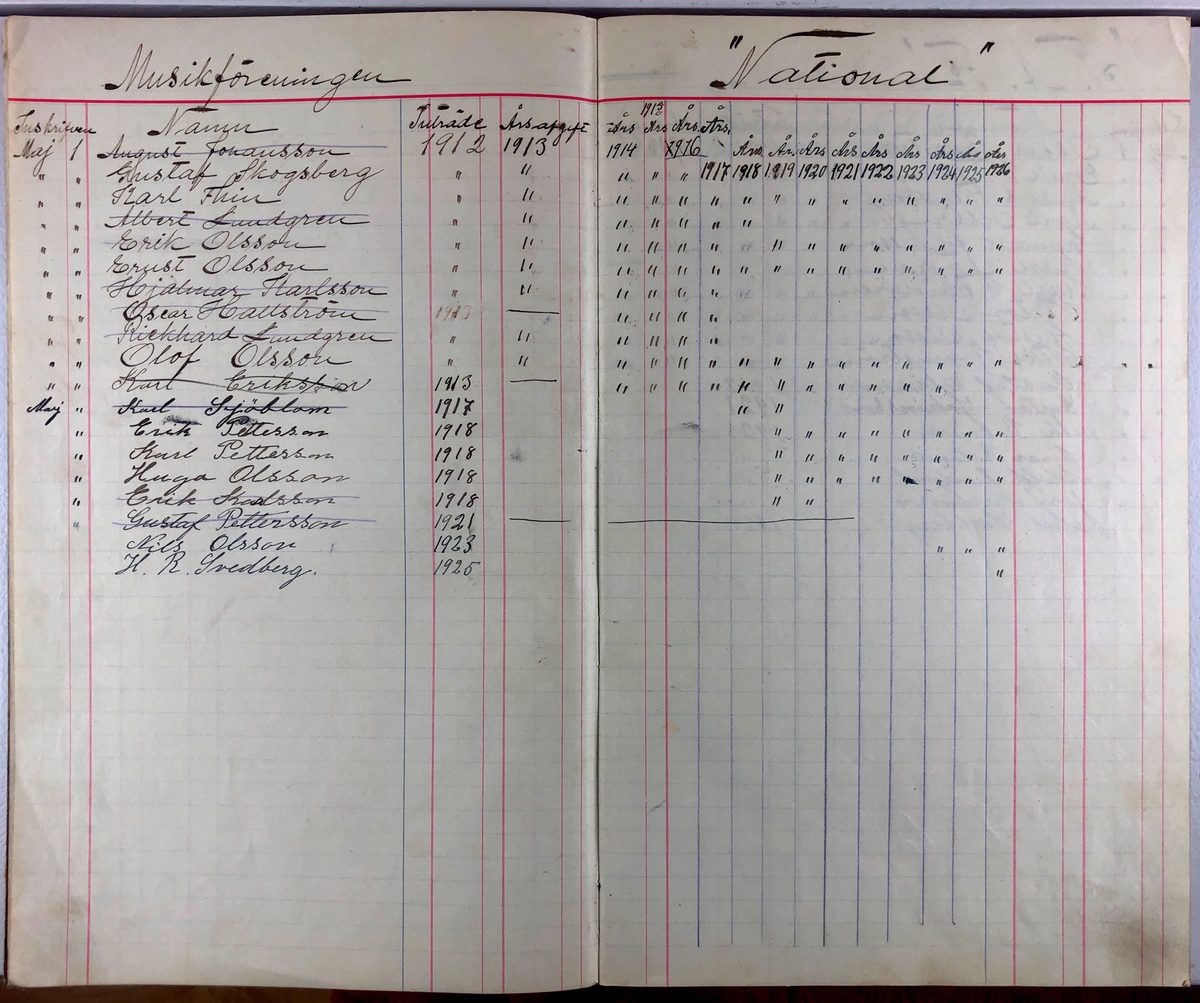 Musikföreningen "National"
Inskrifven Namn Inträde Årsafgift Års 1913 Års Års. Års.
Maj 1 August Johansson 1912 1913 1914 1916 Års Års Års Års Års Års Års Års Års
" " Gustaf Skogsberg " " " " " 1917 1918 1919 1920 1921 1922 1923 1924 1925 1926
" " Karl " " " " " " " " " " " " " " "
" " Albert Lundgren " " " " " " "
" " Erik Olsson " " " " " " " " " " " " " " "
" " Ernst Olsson " " " " " " " " " " " " " " "
" " Hjalmar Karlsson " " " " " "
" " Oscar Hallström 1913 — " " " "
" " Rickhard Lundgren " " " " " "
" " Olof Olsson " " " " " " " " " " " " " " "
" " Karl Eriksson 1913 — " " " " " " " " " " "
Maj " Karl Sjöblom 1917 " "
" Erik Pettersson 1918 " " " " " " " "
" Karl Pettersson 1918 " " " " " " " "
" Hugo Olsson 1918 " " " " " " " "
" Erik Karlsson 1918 " "
" Gustaf Pettersson 1921 — —
Nils Olsson 1923 " " "
H. R. Svedberg. 1925 "